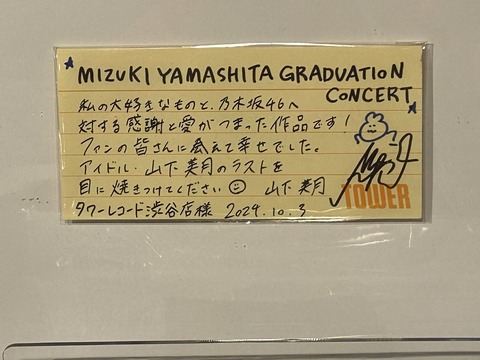 MIZUKI YAMASHITA GRADUATION
CONCERT
私の大好きなものと、乃木坂46へ
対する感謝と愛がつまった作品です！
ファンの皆さんに会えて幸せでした。
アイドル・山下美月のラストを
目に焼きつけてください☺ 山下美月
TOWER
タワーレコード渋谷店様 2024.10.3